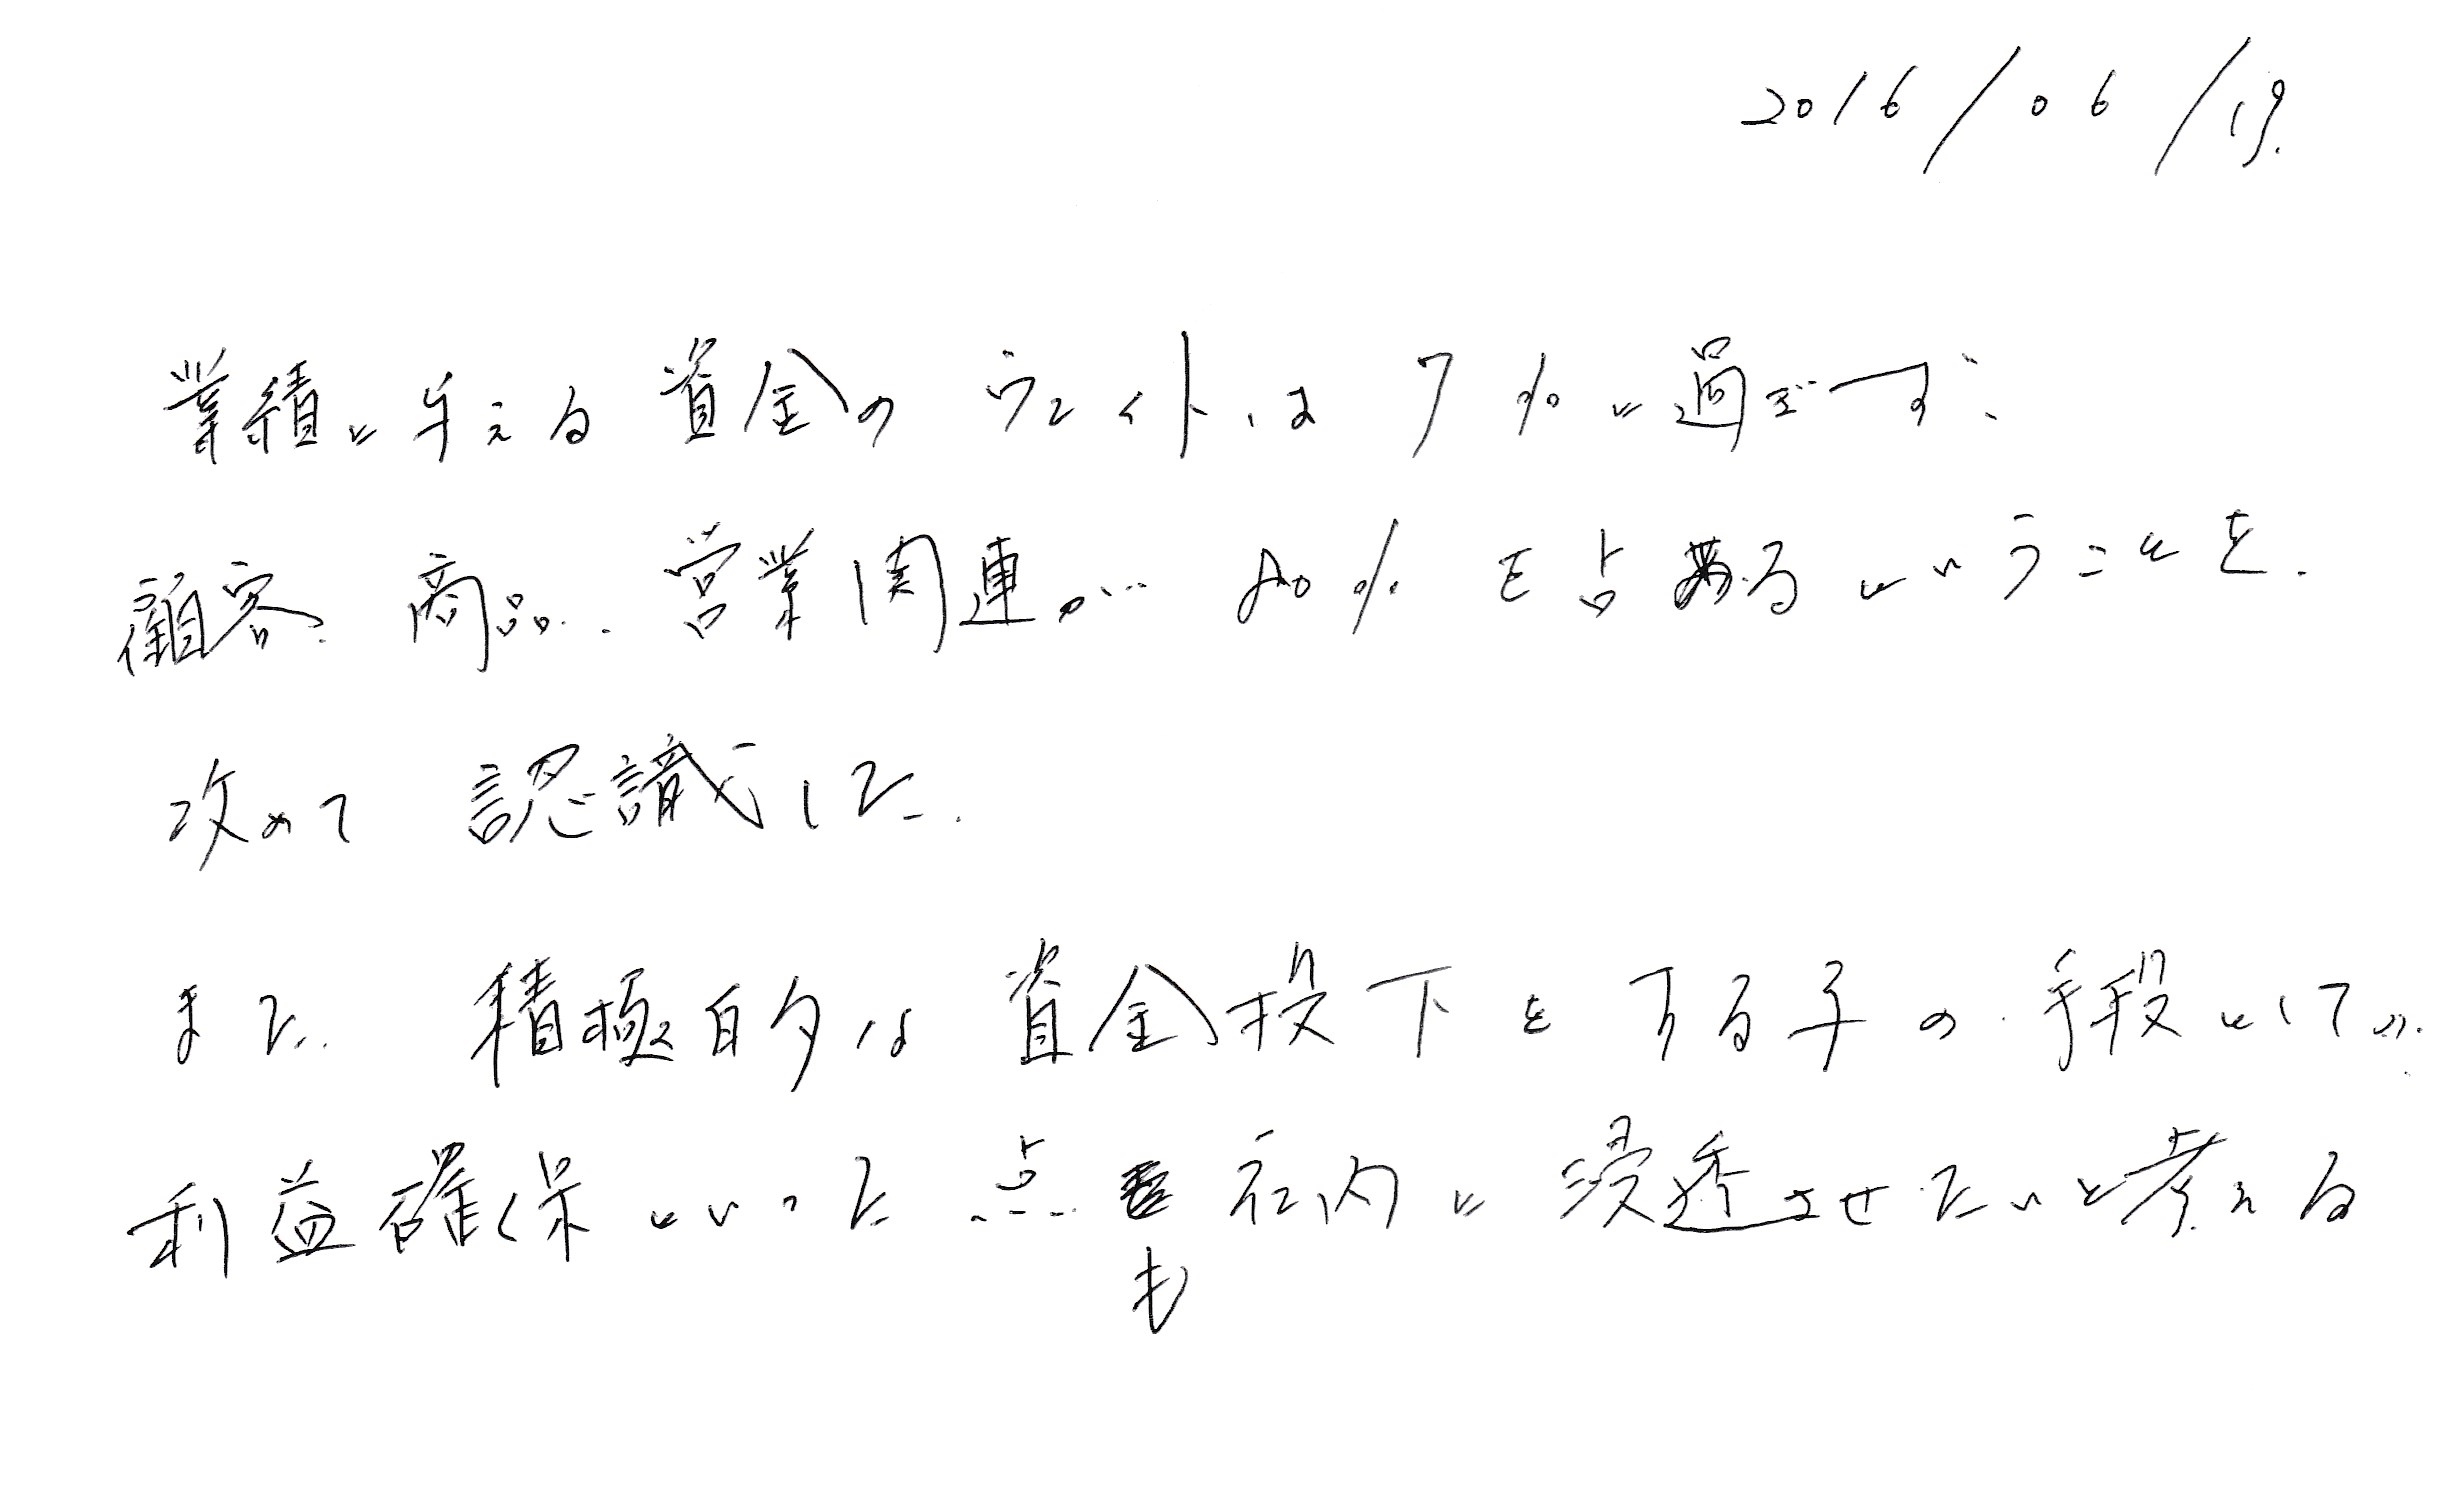 2016/06/19.
業績に与える資金のウェイトは 7%に過ぎず、
顧客、商品、営業関連が 80%を占めるということを、
改めて 認識した。
また、積極的な資金投下をする の手段としての、
利益確保といった点も社内に浸透させたいと考える